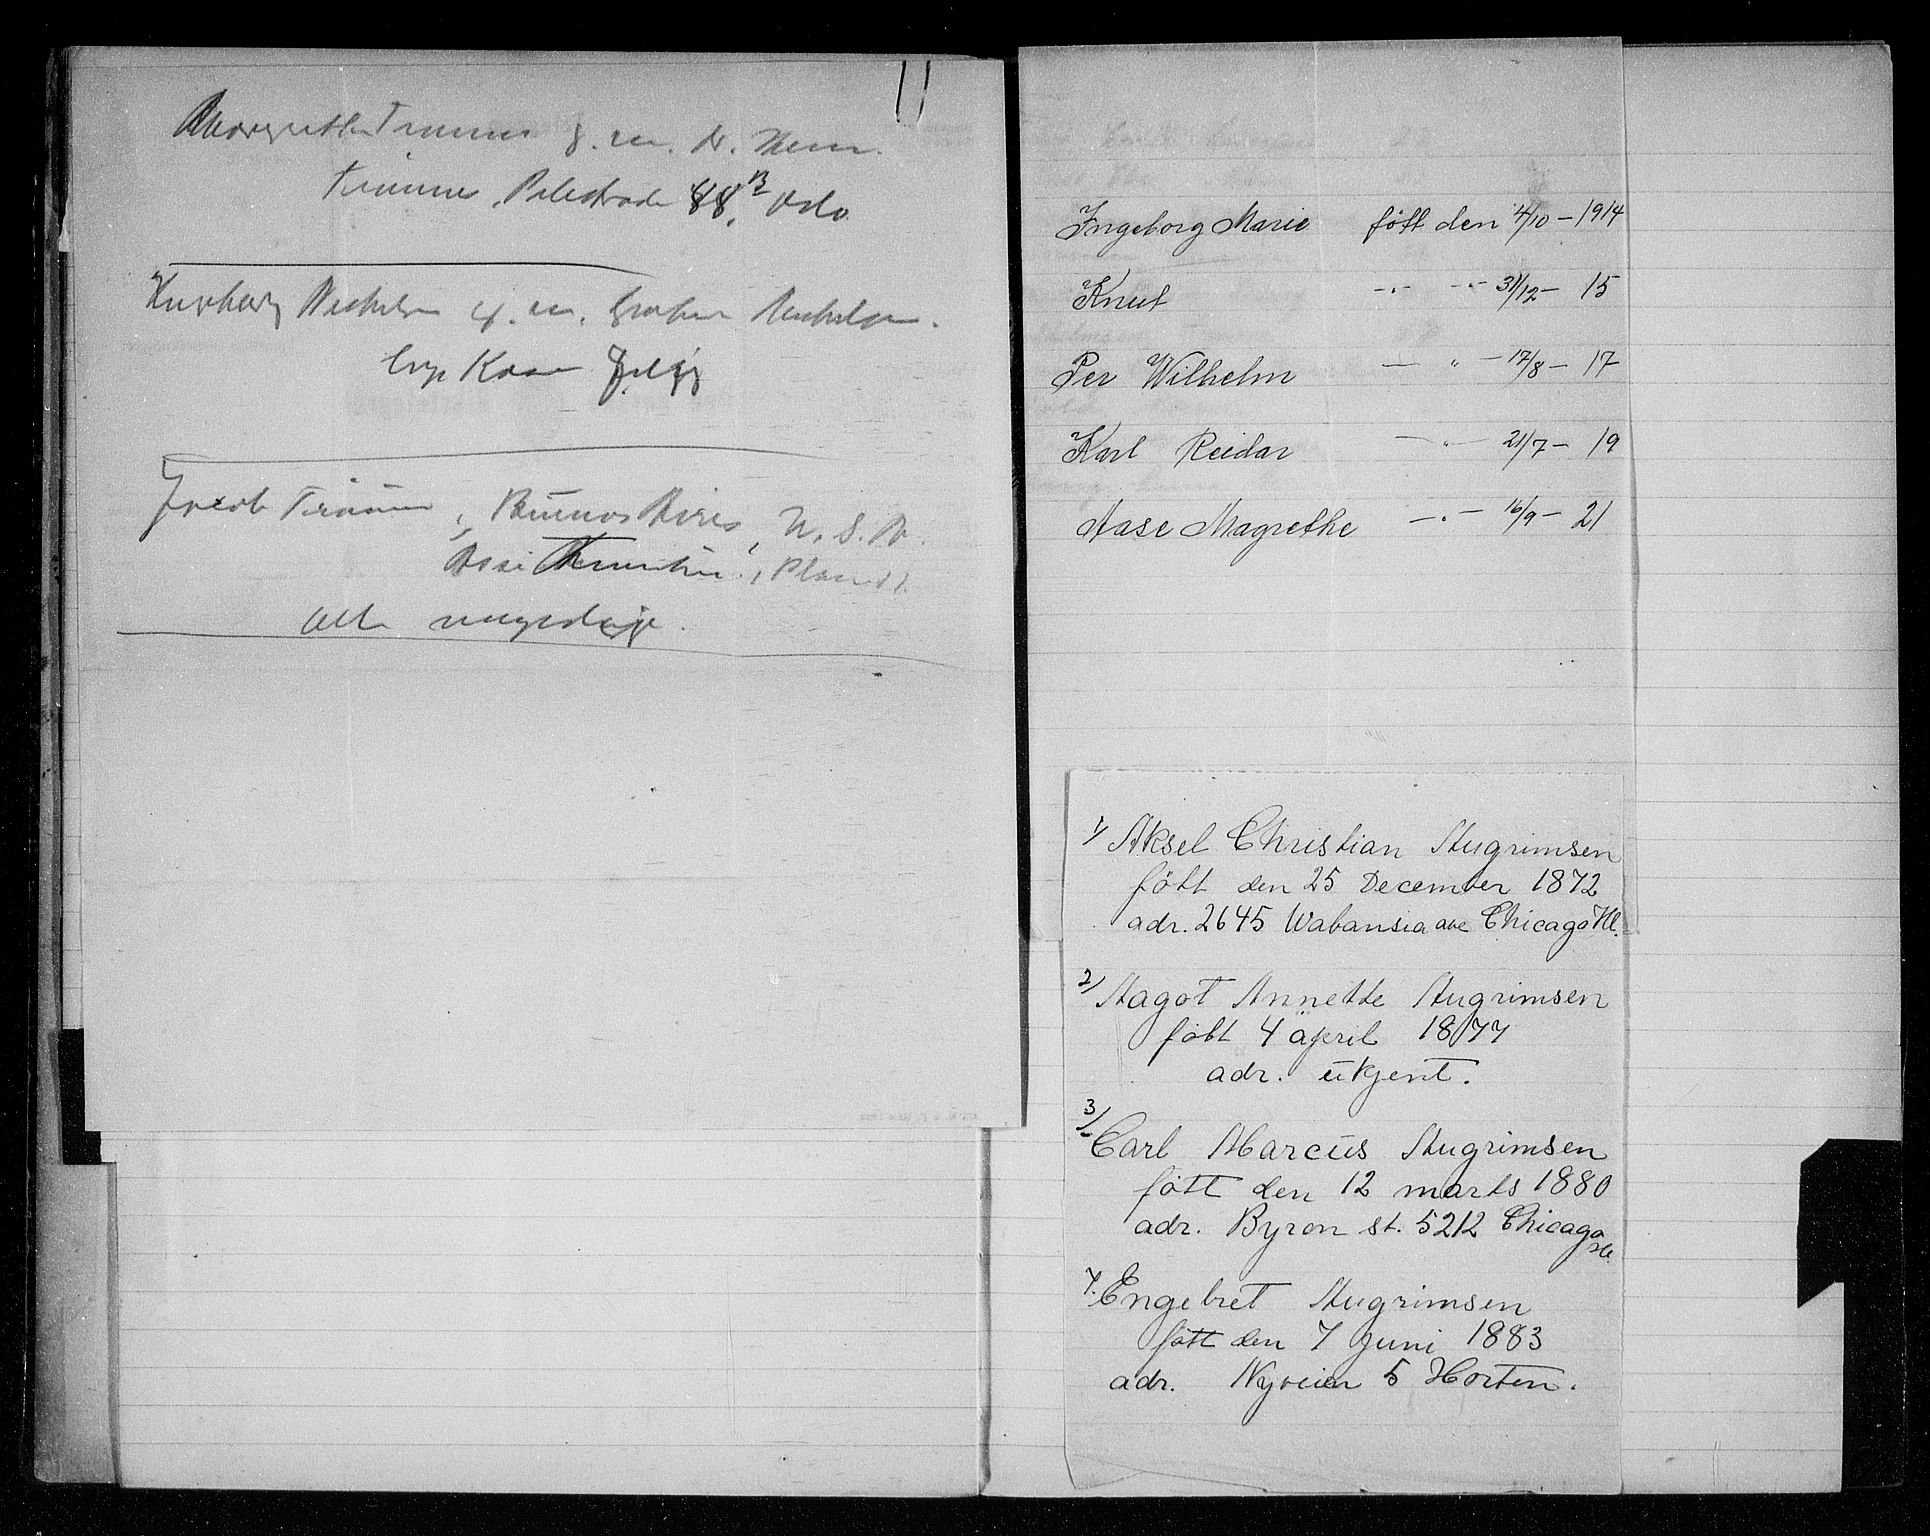 Margrethe Timme g. m. Dr. Herm.
Timme, Pilestræde 88.B Oslo
g. m.
Jacob Timme, Buenos Aires, N. S. A.
alle myndige.
Ingeborg Marie født den 4/10 - 1914
Knut -"- -"- 31/12 - 15
Per Wilhelm - " - 17/8 - 17
Karl Reidar - " - 21/7 - 19
Aase Magrethe - " - 16/9 - 21
1/ Aksel Christian Augrimsen
født den 25 December 1872
adr. 2645 Wabansia ave Chicago Ill.
2/ Aagot Annette Augrimsen
født 4 april 1877
adr. ukjent.
3/ Carl Marcus Augrimsen
født den 12 marts 1880
adr. Byron st. 5212 Chicago Ill.
4. Engebret Augrimsen
født den 7 juni 1883
adr. Nyveien 5 Horten.